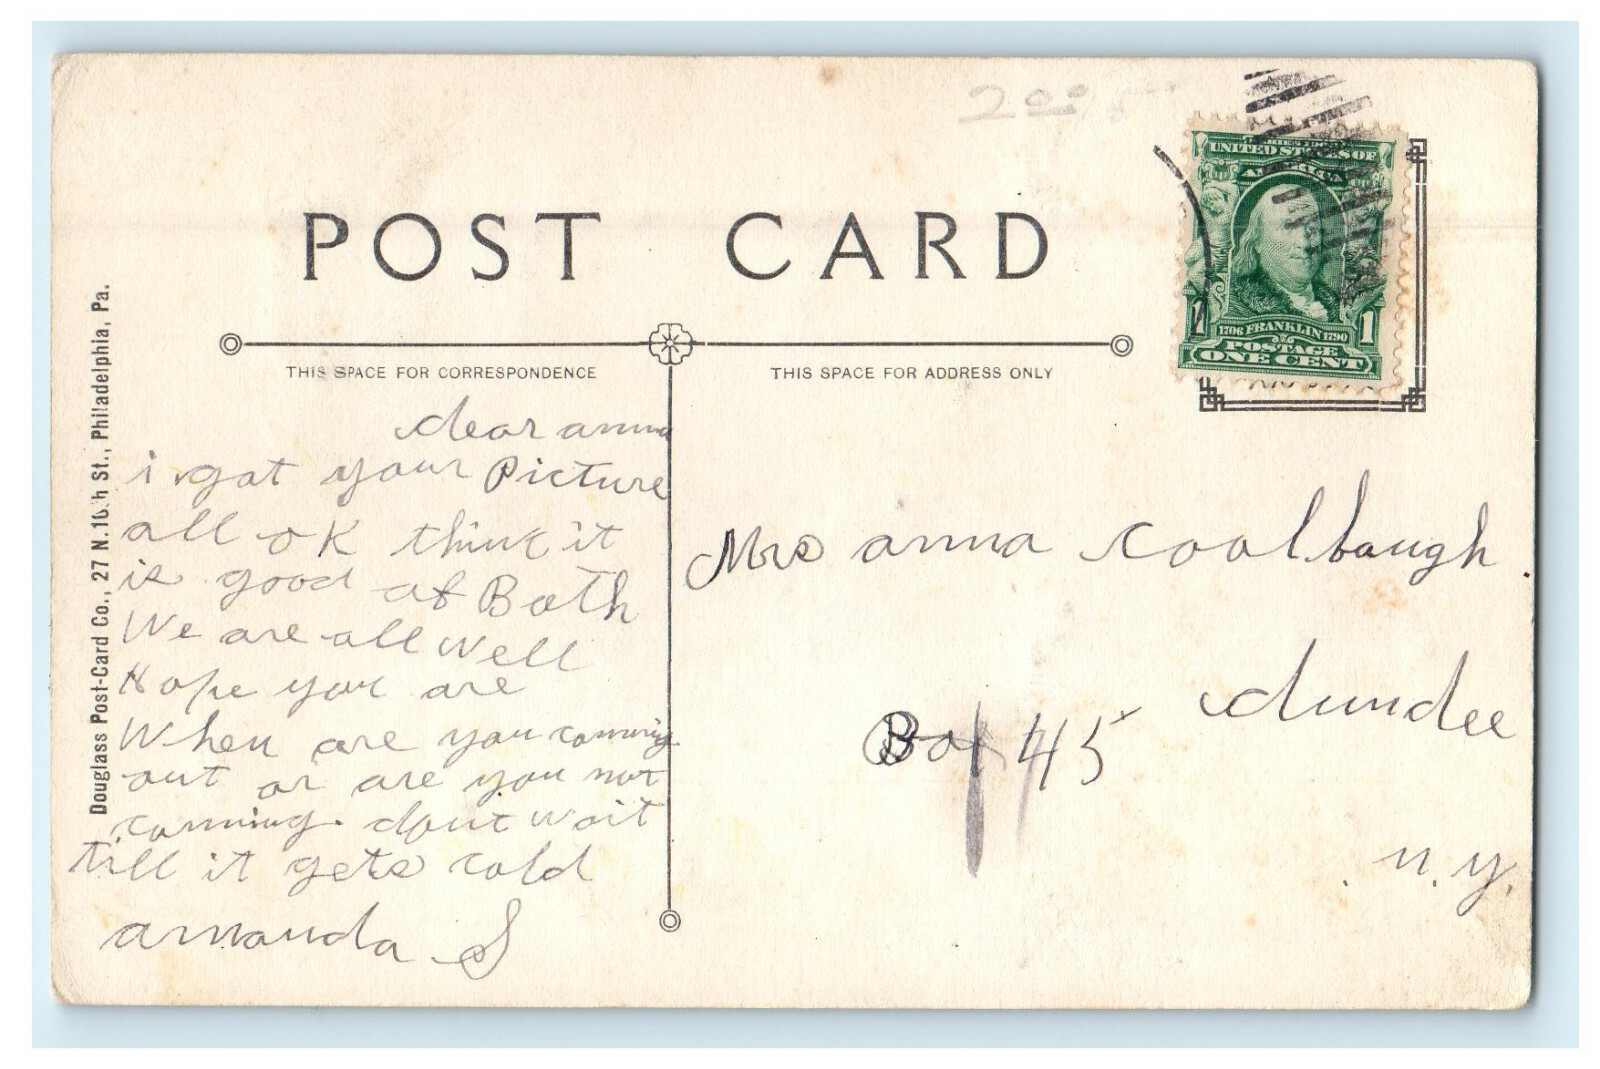 POST CARD
THIS SPACE FOR CORRESPONDENCE
THIS SPACE FOR ADDRESS ONLY
Douglass Post-Card Co., 27 N. 10th St., Philadelphia, Pa.
dear anna
i got your Picture
all ok think it
is good of Both
We are all well
Hope you are
When are you comming
out or are you not
comming. dont wait
till it gets cold
amanda S
Mrs anna Coolbaugh
dundee
Box 45
n.y.
UNITED STATES OF
AMERICA
1706 FRANKLIN 1790
1 1
POSTAGE
ONE CENT
2 00